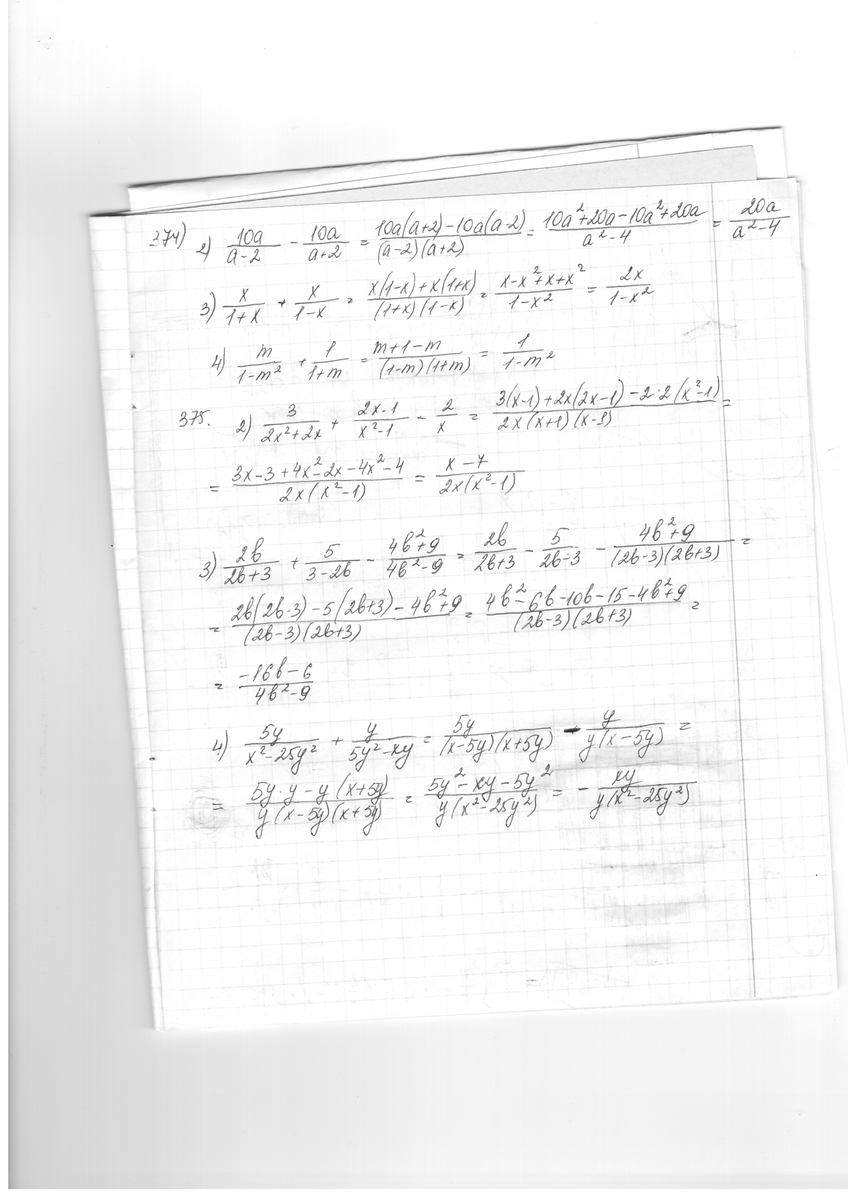 374) 2) 10a/(a-2) - 10a/(a+2) = (10a(a+2)-10a(a-2))/((a-2)(a+2)) = (10a²+20a-10a²+20a)/(a²-4) = 20a/(a²-4)
3) x/(1+x) + x/(1-x) = (x(1-x)+x(1+x))/((1+x)(1-x)) = (x-x²+x+x²)/(1-x²) = 2x/(1-x²)
4) m/(1-m²) + 1/(1+m) = (m+1-m)/((1-m)(1+m)) = 1/(1-m²)
375. 2) 3/(2x²+2x) + (2x-1)/(x²-1) - 2/x = (3(x-1)+2x(2x-1)-2·2(x²-1))/(2x(x+1)(x-1)) =
= (3x-3+4x²-2x-4x²-4)/(2x(x²-1)) = (x-7)/(2x(x²-1))
3) 2b/(2b+3) + 5/(3-2b) - (4b²+9)/(4b²-9) = 2b/(2b+3) - 5/(2b-3) - (4b²+9)/((2b-3)(2b+3)) =
= (2b(2b-3)-5(2b+3)-4b²+9)/((2b-3)(2b+3)) = (4b²-6b-10b-15-4b²+9)/((2b-3)(2b+3)) =
= (-16b-6)/(4b²-9)
4) 5y/(x²-25y²) + y/(5y²-xy) = 5y/((x-5y)(x+5y)) - y/(y(x-5y)) =
= (5y·y-y(x+5y))/(y(x-5y)(x+5y)) = (5y²-xy-5y²)/(y(x²-25y²)) = - xy/(y(x²-25y²))